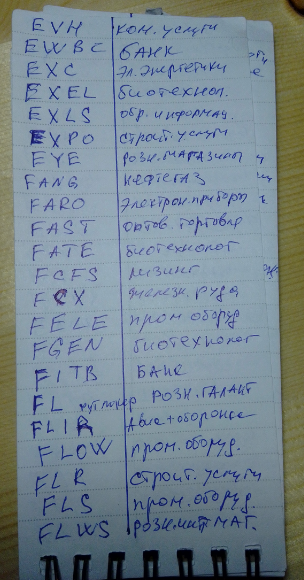 EVH ком. услуги
EWBC банк
EXC эл. энергетики
EXEL биотехнол.
EXLS обр. информац.
EXPO строит. услуги
EYE розн. магазины
FANG нефтегаз
FARO электрон. приборы
FAST оптов. торговля
FATE биотехнолог
FCFS лизинг
FCX железн. руда
FELE пром оборуд
FGEN биотехнолог
FITB Банк
FL футлокер розн. галант
FLIR авиа+оборонка
FLOW пром. оборуд.
FLR строит. услуги
FLS пром. оборуд.
FLWS розн. инт маг.